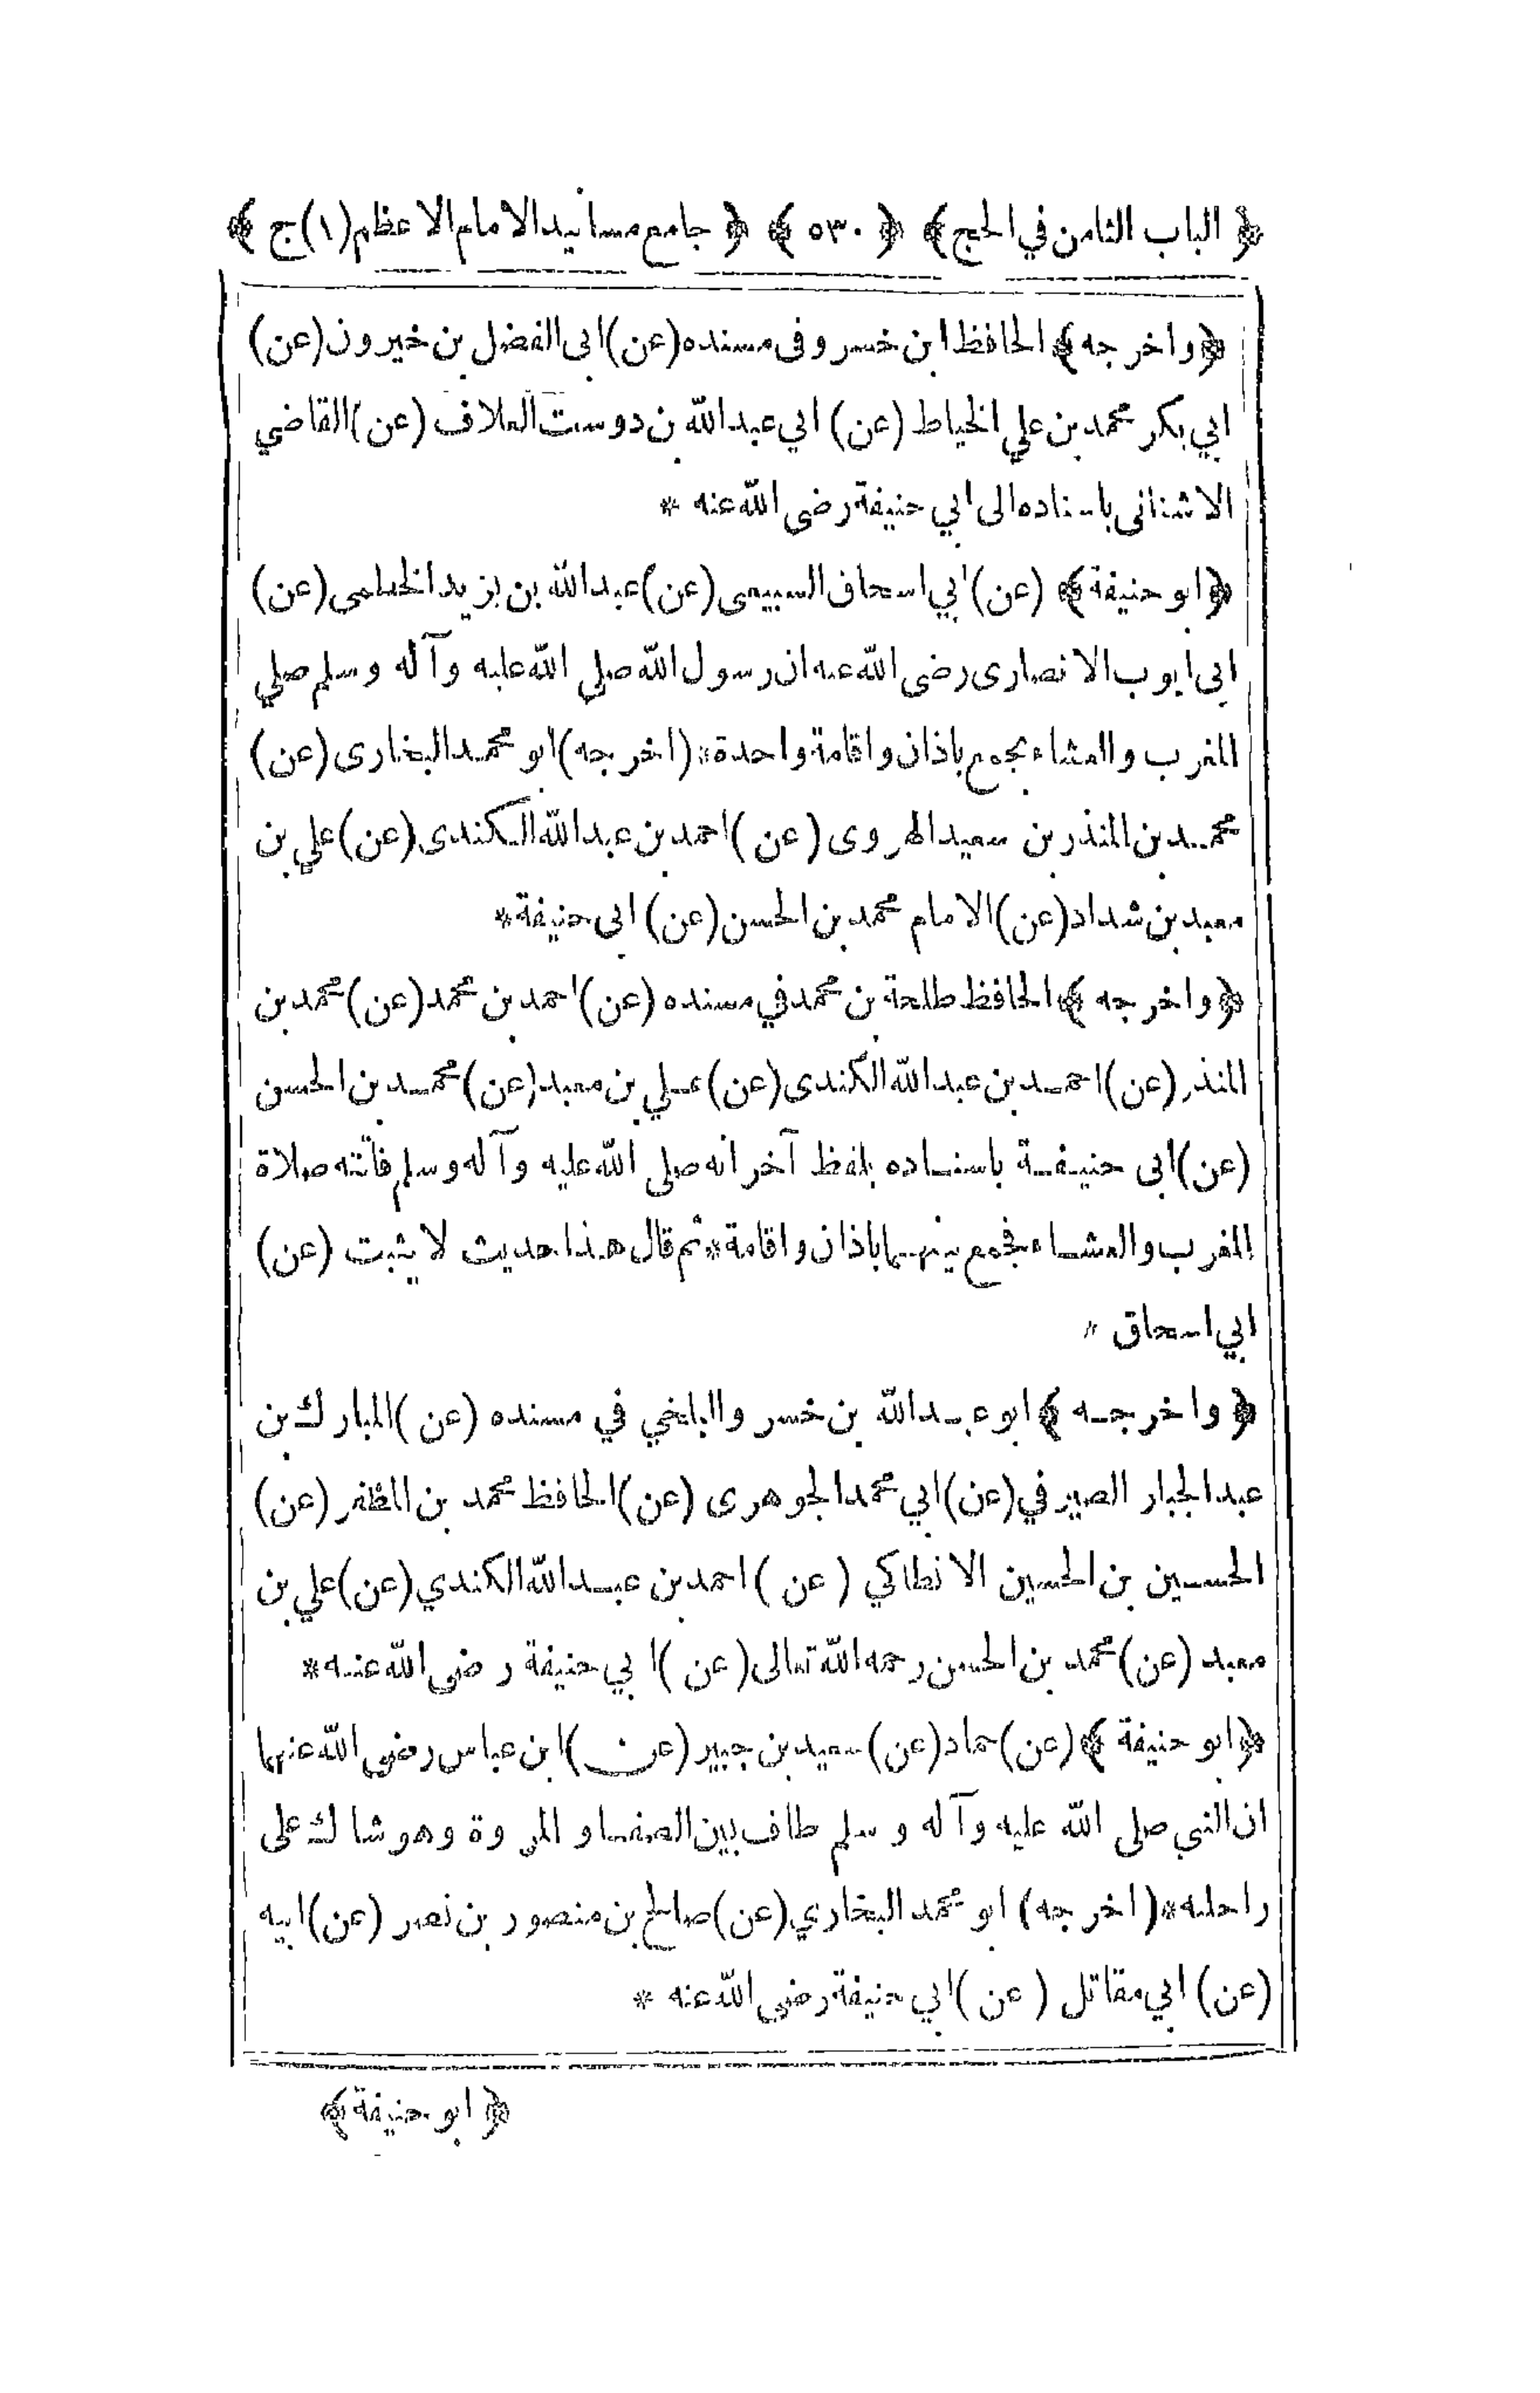 ﴿ الباب الثامن في الحج ﴾ ﴿ ٥٣٠ ﴾ ﴿ جامع مسانيد الامام الاعظم (١) ج ﴾
﴿واخرجه﴾ الحافظ ابن خسرو فى مسنده (عن) ابى الفضل بن خيرون (عن)
ابي بكر محمد بن علي الخياط (عن) ابي عبد الله بن دوست العلاف (عن) القاضي
الاشنانى باسناده الى ابي حنيفة رضى الله عنه *
﴿ابو حنيفة﴾ (عن) ابي اسحاق السبيعى (عن) عبد الله بن يزيد الخطمى (عن)
ابى ايوب الانصارى رضى الله عنه ان رسول الله صلى الله عليه وآله وسلم صلي
المغرب والعشاء بجمع باذان واقامة واحدة * (اخرجه) ابو محمد البخارى (عن)
محمد بن المنذر بن سعيد الهروى (عن) احمد بن عبد الله الكندى (عن) علي بن
معبد بن شداد (عن) الامام محمد بن الحسن (عن) ابى حنيفة *
﴿واخرجه﴾ الحافظ طلحة بن محمد في مسنده (عن) احمد بن محمد (عن) محمد بن
المنذر (عن) احمد بن عبد الله الكندى (عن) علي بن معبد (عن) محمد بن الحسن
(عن) ابى حنيفة باسناده بلفظ آخر انه صلى الله عليه وآله وسلم فاتته صلاة
المغرب والعشاء فجمع بينهما باذان واقامة * ثم قال هذا حديث لا يثبت (عن)
ابي اسحاق *
﴿ واخرجه ﴾ ابو عبد الله بن خسرو البلخي في مسنده (عن) المبارك بن
عبد الجبار الصيرفي (عن) ابي محمد الجوهرى (عن) الحافظ محمد بن المظفر (عن)
الحسين بن الحسين الانطاكي (عن) احمد بن عبد الله الكندي (عن) علي بن
معبد (عن) محمد بن الحسن رحمه الله تعالى (عن) ابي حنيفة رضى الله عنه *
﴿ابو حنيفة ﴾ (عن) حماد (عن) سعيد بن جبير (عن) ابن عباس رضى الله عنهما
ان النبي صلى الله عليه وآله وسلم طاف بين الصفا والمروة وهو شاك على
راحلته * (اخرجه) ابو محمد البخاري (عن) صالح بن منصور بن نصر (عن) ابيه
(عن) ابي مقاتل (عن) ابي حنيفة رضى الله عنه *
﴿ ابو حنيفة ﴾